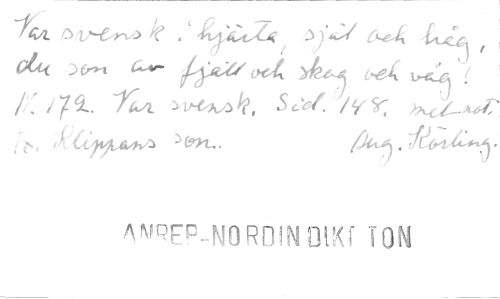 Var svensk i hjärta, själ och håg,
du son av fjäll och skog och våg!
N. 172. Var svensk. Sid. 148. med not.
Klippans son. Aug. Körling.
ANREP-NORDIN DIKT TON